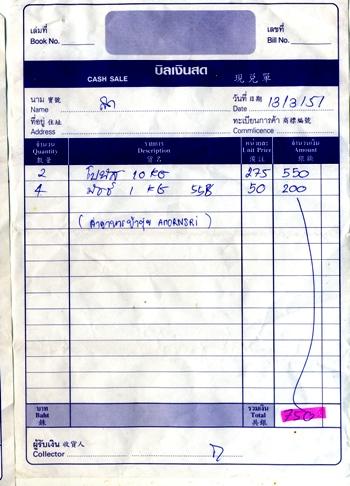 เล่มที่ เลขที่
Book No. Bill No.
บิลเงินสด
CASH SALE 現兑單
นาม 寳號 วันที่ 日期 13/3/51
Name Date
ที่อยู่ 住址 ทะเบียนการค้า 商標編號
Address Commlicence.
จำนวน รายการ หน่วยละ จำนวนเงิน
Quantity Description Unit Price Amount
數量 貨名 價注 銀額
2 10 KG 275 550
4 1 KG 558 50 200
( AMORNSRI )
บาท รวมเงิน
Baht Total 750
銖 共銀
ผู้รับเงิน 收貨人
Collector